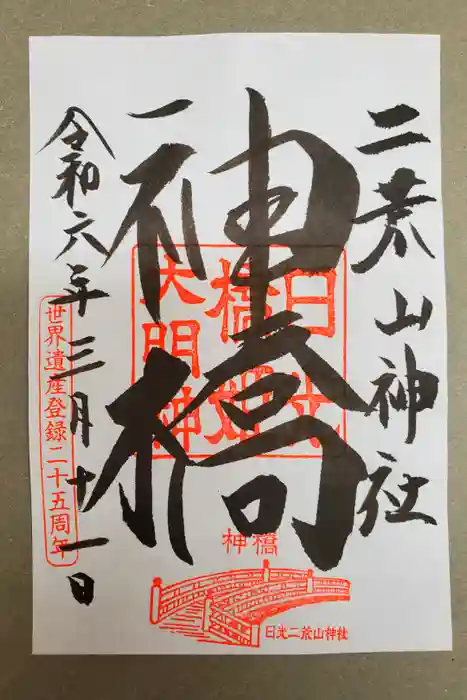 二荒山神社
神橋
日光
橋姫
大明神
令和六年三月十一日
世界遺産登録二十五周年
神橋
日光二荒山神社